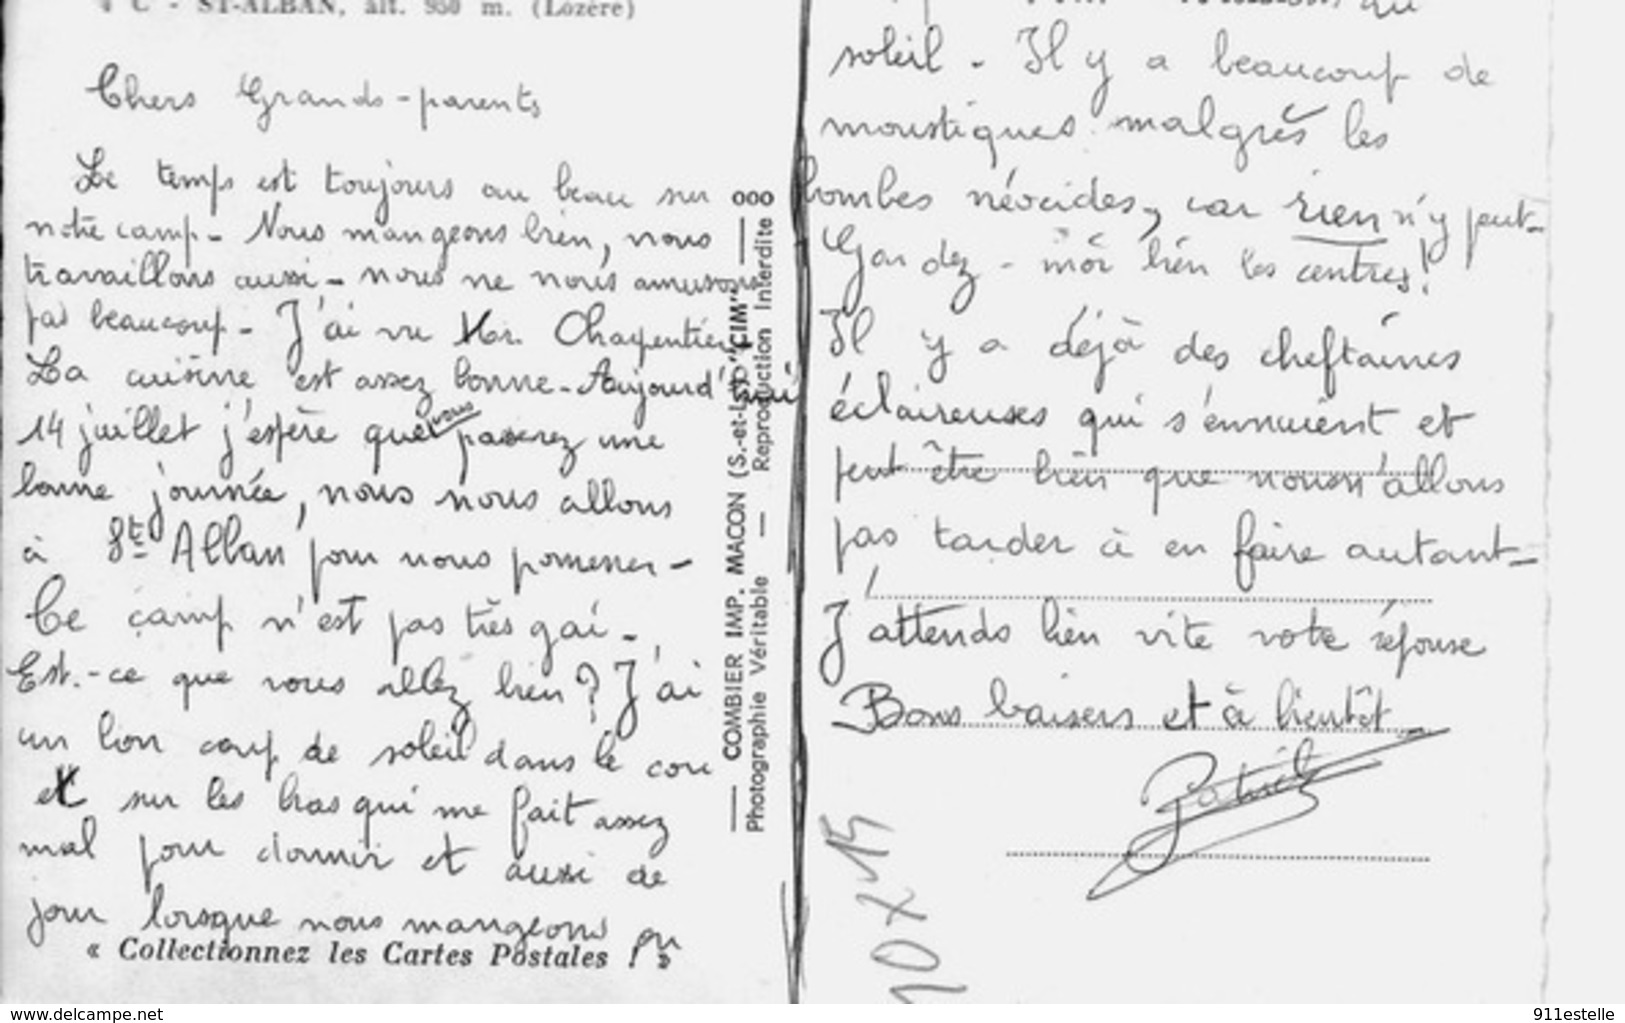 4 C - ST-ALBAN, alt. 950 m. (Lozère)
Chers Grands-parents
Le temps est toujours au beau sur
notre camp - Nous mangeons bien, nous
travaillons aussi - nous ne nous amusons
pas beaucoup - J'ai vu Mr. Charpentier
La cuisine est assez bonne - Aujourd'hui
14 juillet j'espère que vous passerez une
bonne journée, nous nous allons
à St Alban pour nous promener -
Ce camp n'est pas très gai -
Est-ce que vous allez bien ? J'ai
un bon coup de soleil dans le cou
et sur les bras qui me fait assez
mal pour dormir et aussi de
jour lorsque nous mangeons au
« Collectionnez les Cartes Postales ! »
COMBIER IMP. MACON (S.-et-L.) "CIM"
Photographie Véritable — Reproduction Interdite
soleil - Il y a beaucoup de
moustiques malgrès les
bombes néocides, car rien n'y peut -
Gardez - moi bien les centres !
Il y a déjà des cheftaines
éclaireuses qui s'ennuient et
peut être bien que nous n'allons
pas tarder à en faire autant -
J'attends bien vite votre réponse
Bons baisers et à bientôt
Patrick
10 x 15
www.delcampe.net
911estelle